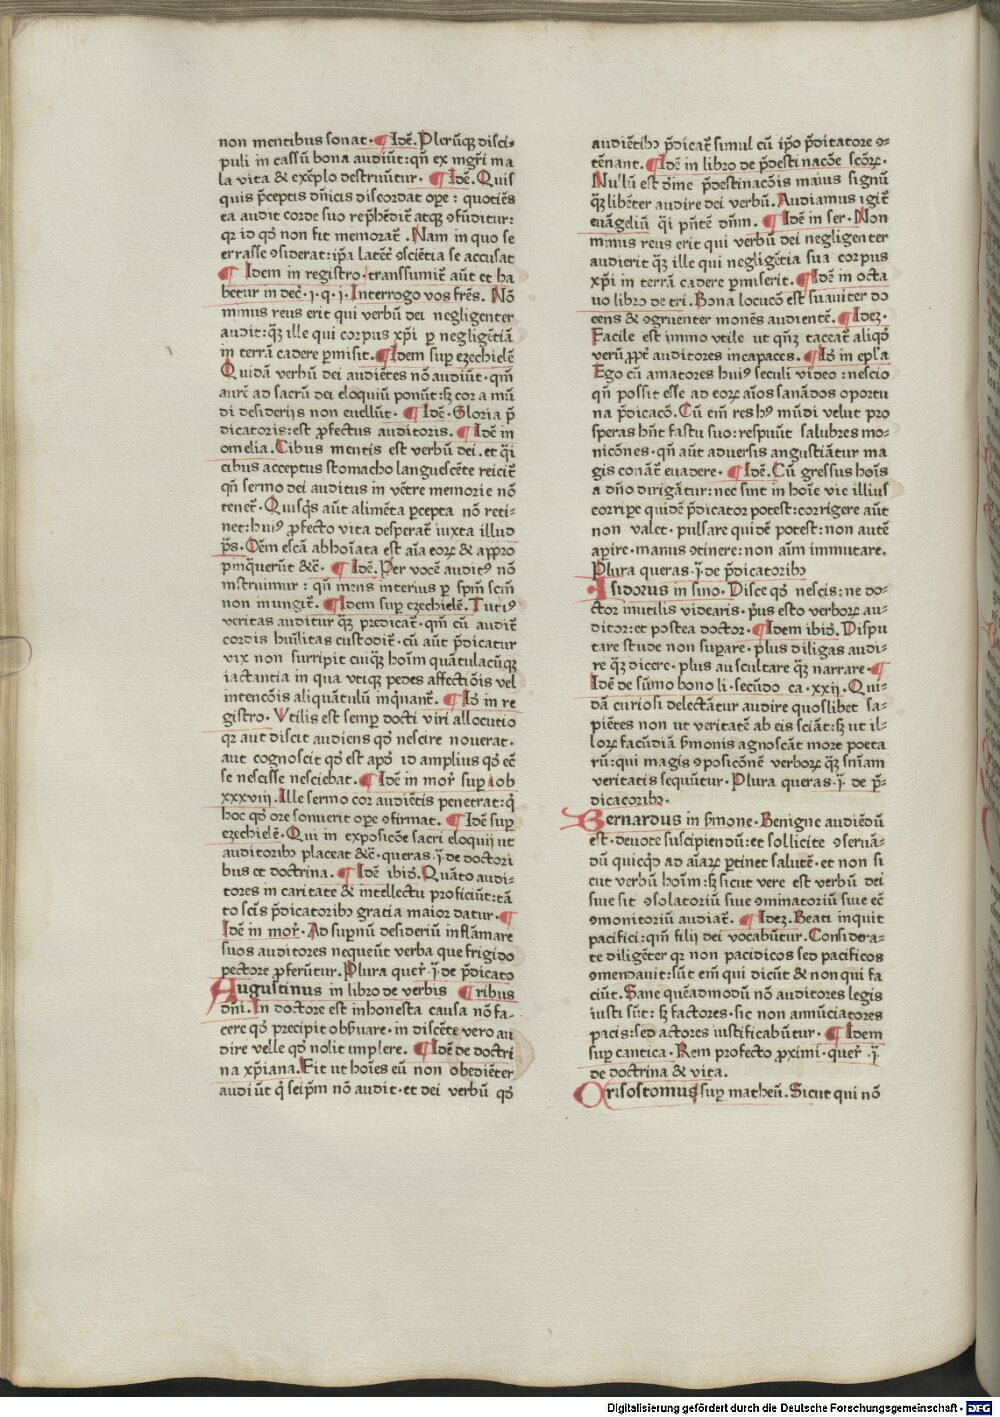 non mentibus sonat. ¶ Idē. Plerūqꝫ disci-
puli in cassū bona audiūt: qn̄ ex mgr̄i ma
la vita & exēplo destruūtur. ¶ Idē. Quis
quis p̄ceptis dn̄icis discordat oꝑe: quotiēs
ea audit corde suo rep̄hēdit̄ atqꝫ ꝯfūditur:
qꝛ id qđ non fit memorat̄. Nam in quo se
errasse ꝯsiderat: ip̄a latēt̄ ꝯsciētia se accusat
¶ Idem in registro. transsumit̄ aūt et ha
betur in dec̄. j. q. j. Interrogo vos fr̄es. Nō
minus reus erit qui verbū dei negligenter
audit: qꝫ ille qui corpus xp̄i ꝑ negligētiā
in terrā cadere ꝑmisit. ¶ Idem suꝑ ezechielē
Quidā verbū dei audiētes nō audiūt. qm̄
aurē ad sacrū dei eloquiū ponūt: sꝫ cor a mū
di desiderijs non euellūt. ¶ Idē. Gloria p̄
dicatoris: est ꝓfectus auditoris. ¶ Idē in
omelia. Cibus mentis est verbū dei. et q̄si
cibus acceptus stomacho languescēte reicit̄
qn̄ sermo dei auditus in vētre memorie nō
tenet̄. Quisqꝫ aūt alimēta ꝑcepta nō reti-
net: huiꝰ ꝓfecto vita desperat̄ iuxta illud
p̄s. Oēm escā abhoīata est aīa eoꝝ & appro
pinq̄uerūt &c̄. ¶ Idē. Per vocē auditꝰ nō
instruimur: qn̄ mens interius ꝑ spm̄ scm̄
non inungit̄. ¶ Idem suꝑ ezechielē. Tutiꝰ
veritas auditur qꝫ predicat̄. qm̄ cū audit̄
cordis huīlitas custodit̄. cū aūt p̄dicatur
vix non surripit cuiqꝫ hoīm quātulacūqꝫ
iactantia in qua vtiqꝫ pedes affectiōis vel
intencōis aliquātulū inq̄nant̄. ¶ Iđ in re
gistro. Vtilis est semꝑ docti viri allocutio
qꝛ aut discit audiens qđ nescire nouerat.
aut cognoscit qđ est apđ id amplius qđ eē
se nescisse nesciebat. ¶ Idē in mor̄ suꝑ iob
xxxviij. Ille sermo cor audiētis penetrat: q̄
hoc qđ ore sonuerit oꝑe ꝯfirmat. ¶ Idē suꝑ
ezechielē. Qui in exposicōe sacri eloquij ut
auditoribꝫ placeat &c̄. queras. j̄. de doctori
bus et doctrina. ¶ Idē ibiđ. Quāto audi-
tores in caritate & intellectu proficiūt: tā
to scīs p̄dicatoribꝫ gratia maior datur. ¶
Idē in mor̄. Ad suꝑnū desideriū inflāmare
suos auditores nequeūt verba que frigido
pectore ꝓferūtur. Plura quer̄. j̄. de p̄dicato
Augustinus in libro de verbis ¶ ribus
dn̄i. In doctore est inhonesta causa nō fa-
cere qđ precipit obẜuare. in discēte vero au
dire velle qđ nolit implere. ¶ Idē de doctri
na xp̄iana. Fit ut hoīes eū non obediēter
audiūt q̄ seip̄m nō audit. et dei verbū qđ
audiētibꝫ p̄dicat̄ simul cū ip̄o p̄ditatore ꝯ-
tēnant. ¶ Idē in libro de p̄destinacōe scōꝝ.
Nullū est oīne p̄destinacōis maius signū
qꝫ libēter audire dei verbū. Audiamus igit̄
euāgeliū q̄si pn̄tē dn̄m. ¶ Idē in ser. Non
minus reus erit qui verbū dei negligenter
audierit qꝫ ille qui negligētia sua corpus
xp̄i in terrā cadere ꝑmiserit. ¶ Idē in octa
uo libro de tri. Bona locucō est suauiter do
cens & ꝯgruenter monēs audientē. ¶ Idez.
Facile est immo vtile ut qn̄qꝫ taceat̄ aliqđ
verū ꝓpt̄ auditores incapaces. ¶ Iđ in epl̄a
Ego cū amatores huiꝰ seculi video: nescio
qn̄ possit esse ad eoꝝ aīos sanādos oportu
na p̄dicacō. Cū em̄ res hꝰ mūdi velut pro
speras hn̄t fastu suo: respuūt salubres mo-
nicōnes. qn̄ aūt aduersis angustiātur ma
gis conāt̄ euadere. ¶ Idē. Cū gressus hoīs
a dn̄o dirigātur: nec sint in hoīe vie illius
corriꝑe quidē p̄dicator potest: corrigere aūt
non valet. pulsare quidē potest: non autē
aꝑire. manus ꝯtinere: non aīm immutare.
Plura queras. j̄. de p̄dicatoribꝫ
Isidorus in sino. Disce qđ nescis: ne do-
ctor inutilis videaris. pꝰus esto verboꝝ au-
ditor: et postea doctor. ¶ Idem ibiđ. Dispu
tare stude non suꝑare. plus diligas audi-
re qꝫ dicere. plus auscultare qꝫ narrare. ¶
Idē de sūmo bono li. secūdo ca. xxij. Qui-
dā curiosi delectātur audire quoslibet sa-
piētes non ut veritatē ab eis sciāt: sꝫ ut il-
loꝝ facūdiā ẜmonis agnoscāt more poeta
rū: qui magis ꝯposicōnē verboꝝ qꝫ sn̄iam
veritatis sequūtur. Plura queras. j̄. de p̄-
dicatoribꝫ.
Bernardus in ẜmone. Benigne audiēdū
est. deuote suscipiendū: et sollicite ꝯseruā-
dū quicqđ ad aīaꝝ ꝑtinet salutē. et non si
cut verbū hoīm: sꝫ sicut vere est verbū dei
siue sit ꝯsolatoriū siue ꝯminatoriū siue ec̄
ꝯmonitoriū audiat̄. ¶ Idez. Beati inquit
pacifici: qm̄ filij dei vocabūtur. Considera-
te diligēter qꝛ non pacidicos sed pacificos
ꝯmendauit: sūt em̄ qui dicūt & non qui fa
ciūt. Sane quēadmodū nō auditores legis
iusti sūt: sꝫ factores. sic non annūciatores
pacis: sed actores iustificabūtur. ¶ Idem
suꝑ cantica. Rem profecto ꝓximi. quer̄. j̄.
de doctrina & vita.
Crisostomus suꝑ matheū. Sicut qui nō
Digitalisierung gefördert durch die Deutsche Forschungsgemeinschaft - DFG